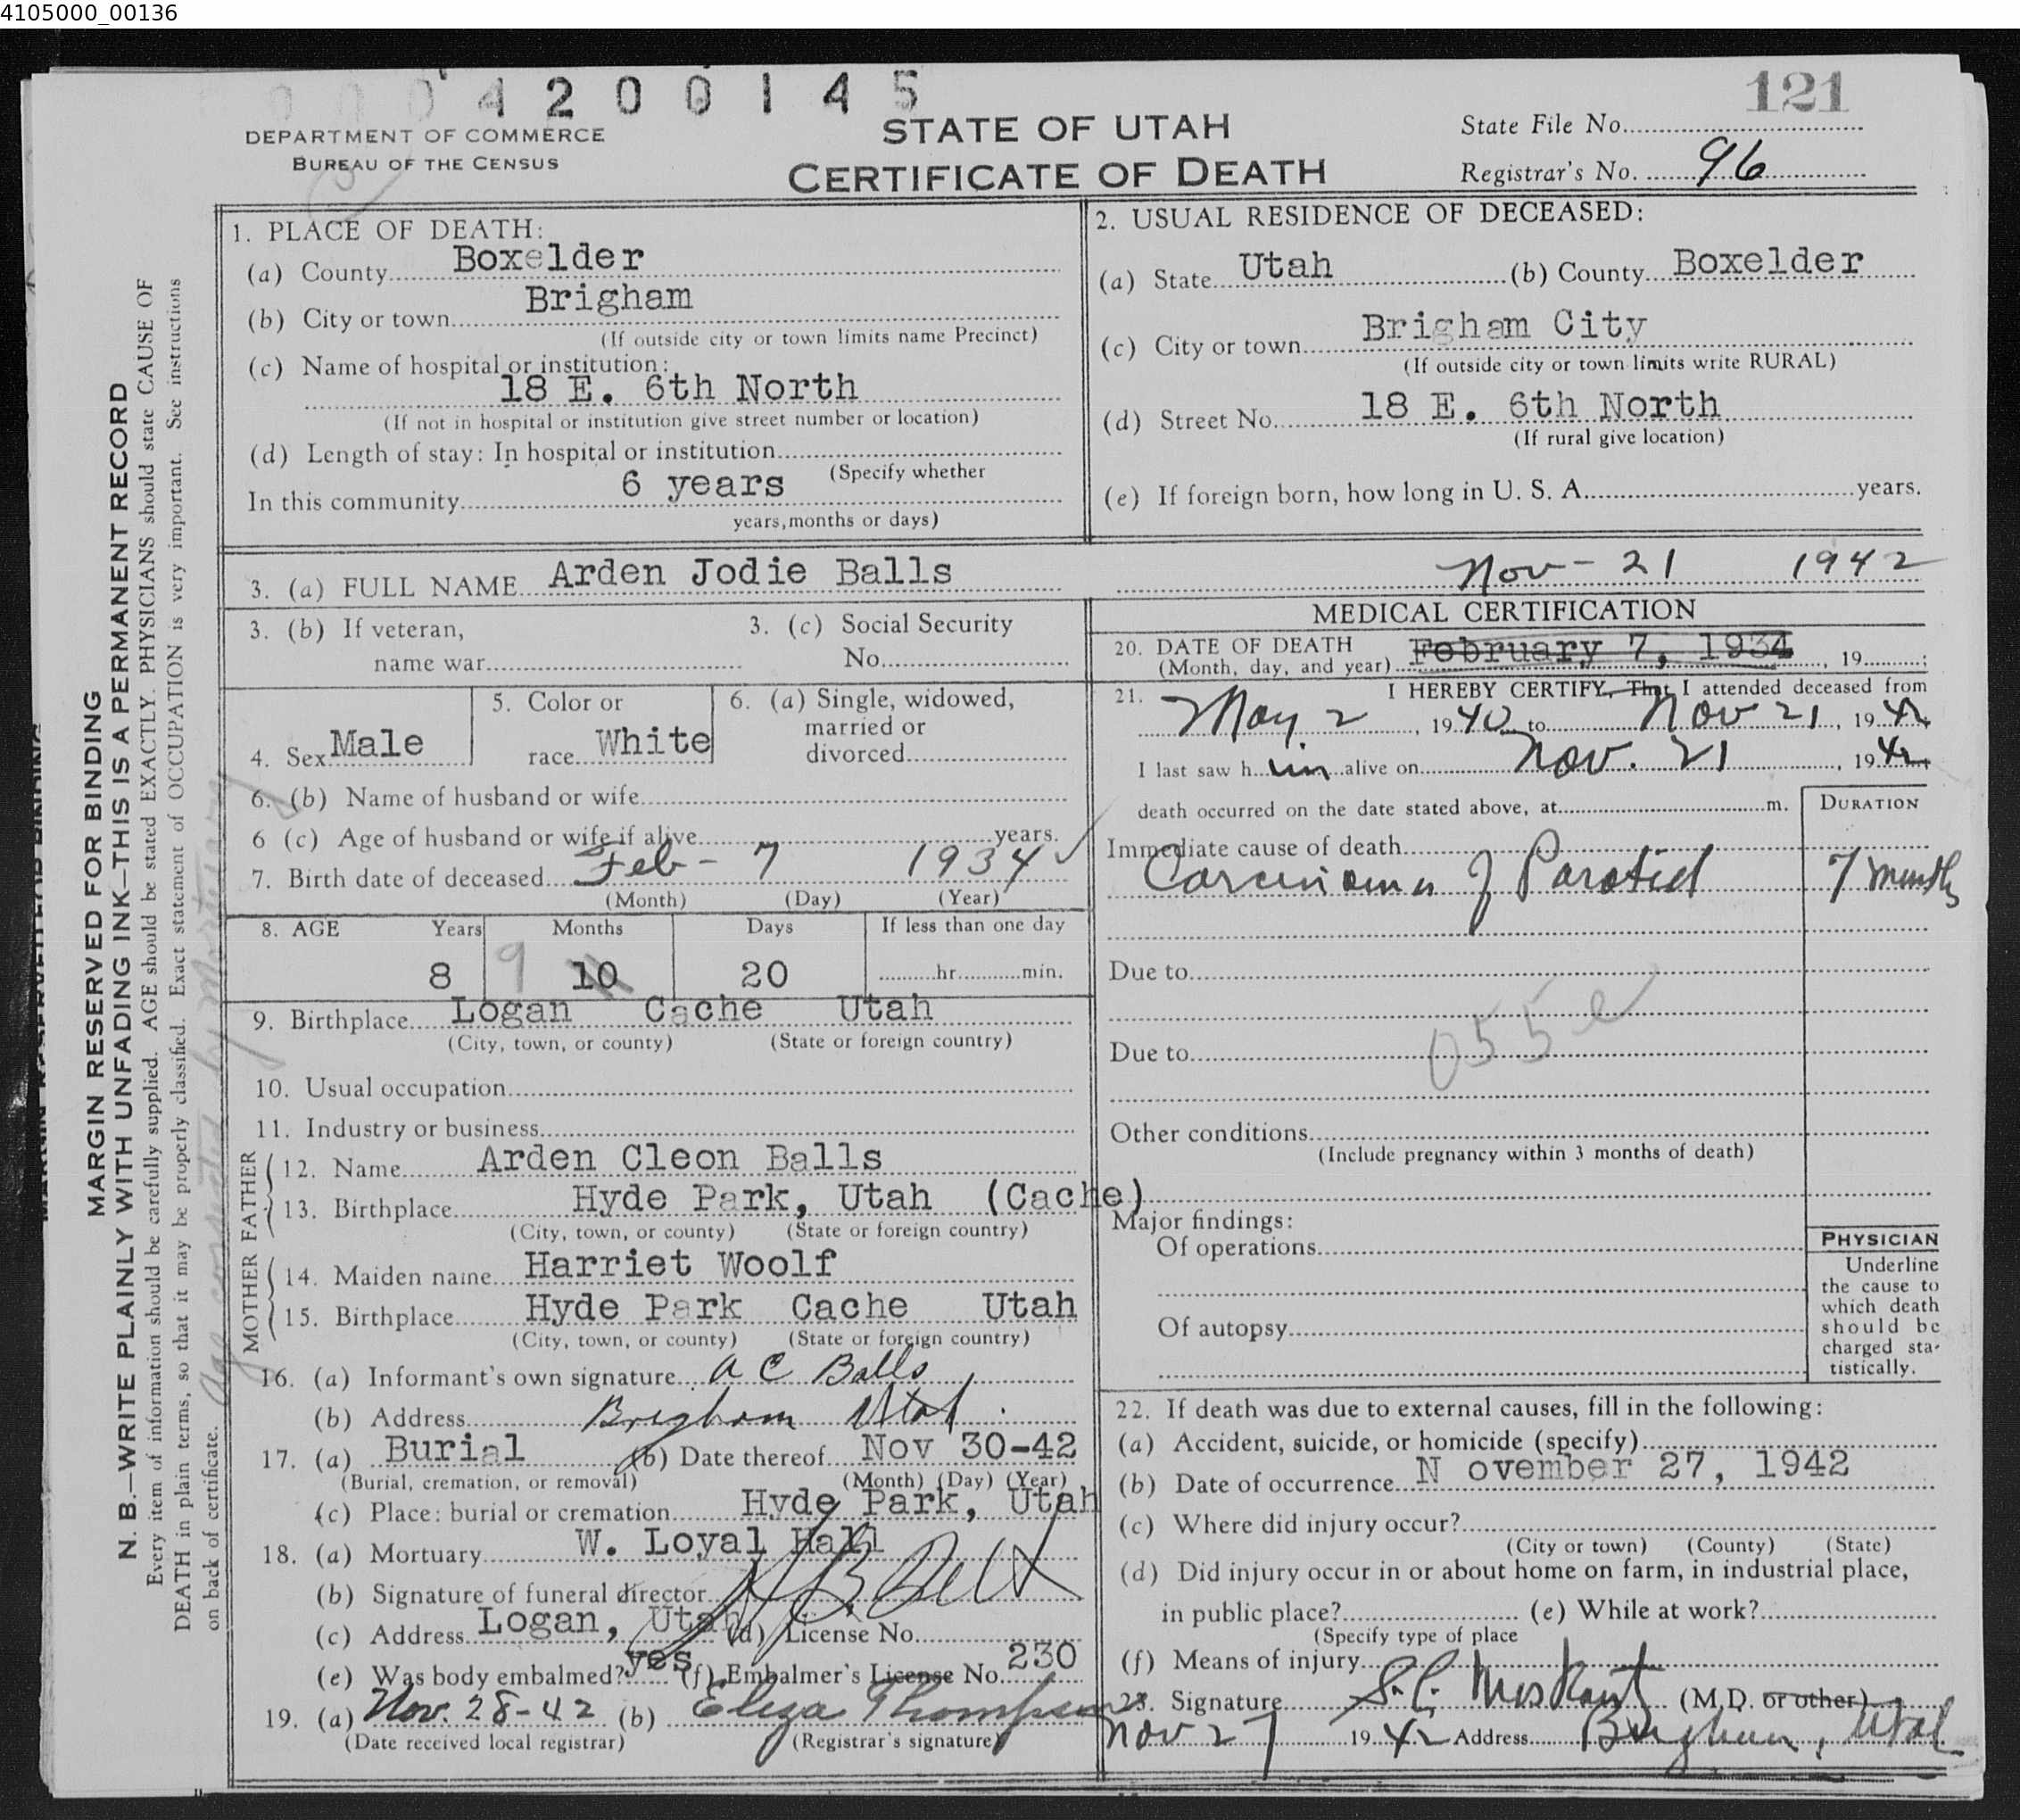 4105000_00136
0004200145
121
DEPARTMENT OF COMMERCE
BUREAU OF THE CENSUS
STATE OF UTAH
CERTIFICATE OF DEATH
State File No.
Registrar's No. 96
1. PLACE OF DEATH:
(a) County Boxelder
(b) City or town Brigham
(If outside city or town limits name Precinct)
(c) Name of hospital or institution:
18 E. 6th North
(If not in hospital or institution give street number or location)
(d) Length of stay: In hospital or institution
(Specify whether
In this community 6 years
years, months or days)
2. USUAL RESIDENCE OF DECEASED:
(a) State Utah (b) County Boxelder
(c) City or town Brigham City
(If outside city or town limits write RURAL)
(d) Street No. 18 E. 6th North
(If rural give location)
(e) If foreign born, how long in U. S. A. years.
3. (a) FULL NAME Arden Jodie Balls
3. (b) If veteran, name war
3. (c) Social Security No.
4. Sex Male
5. Color or race White
6. (a) Single, widowed, married or divorced
6. (b) Name of husband or wife
6 (c) Age of husband or wife if alive years.
7. Birth date of deceased Feb - 7 1934
(Month) (Day) (Year)
8. AGE Years Months Days If less than one day
8 9 10 20 hr. min.
9. Birthplace Logan Cache Utah
(City, town, or county) (State or foreign country)
10. Usual occupation
11. Industry or business
FATHER
12. Name Arden Cleon Balls
13. Birthplace Hyde Park, Utah (Cache)
(City, town, or county) (State or foreign country)
MOTHER
14. Maiden name Harriet Woolf
15. Birthplace Hyde Park Cache Utah
(City, town, or county) (State or foreign country)
16. (a) Informant's own signature A C Balls
(b) Address Brigham Utah
17. (a) Burial (b) Date thereof Nov 30-42
(Burial, cremation, or removal) (Month) (Day) (Year)
(c) Place: burial or cremation Hyde Park, Utah
18. (a) Mortuary W. Loyal Hall
(b) Signature of funeral director
(c) Address Logan, Utah (d) License No.
(e) Was body embalmed? yes (f) Embalmer's License No. 230
19. (a) Nov. 28-42 (b) Eliza Thompson
(Date received local registrar) (Registrar's signature)
Nov - 21 1942
MEDICAL CERTIFICATION
20. DATE OF DEATH
(Month, day, and year) February 7, 1934, 19 ;
21. I HEREBY CERTIFY, That I attended deceased from
May 2, 1940 to Nov 21, 1942
I last saw him alive on Nov. 21, 1942
death occurred on the date stated above, at m.
DURATION
Immediate cause of death
Carcinoma of Parotid 7 months
Due to
055e
Due to
Other conditions
(Include pregnancy within 3 months of death)
Major findings:
Of operations
Of autopsy
PHYSICIAN
Underline
the cause to
which death
should be
charged sta-
tistically.
22. If death was due to external causes, fill in the following:
(a) Accident, suicide, or homicide (specify)
(b) Date of occurrence N ovember 27, 1942
(c) Where did injury occur?
(City or town) (County) (State)
(d) Did injury occur in or about home on farm, in industrial place,
in public place? (e) While at work?
(Specify type of place
(f) Means of injury
23. Signature (M.D. or other)
Nov 27 1942 Address Brigham, Utah
MARGIN RESERVED FOR BINDING
N. B.—WRITE PLAINLY WITH UNFADING INK—THIS IS A PERMANENT RECORD
Every item of information should be carefully supplied. AGE should be stated EXACTLY. PHYSICIANS should state CAUSE OF
DEATH in plain terms, so that it may be properly classified. Exact statement of OCCUPATION is very important. See instructions
on back of certificate.
Age corrected by Mortuary